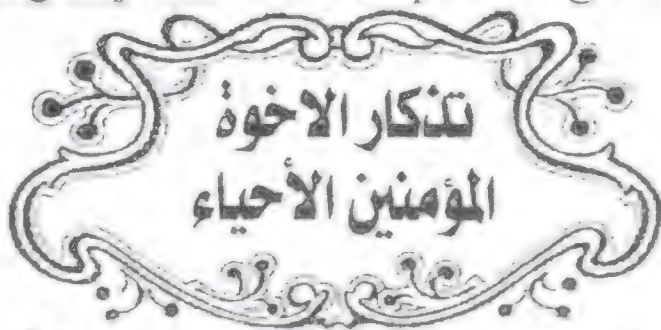 تذكار الاخوة
المؤمنين الأحياء